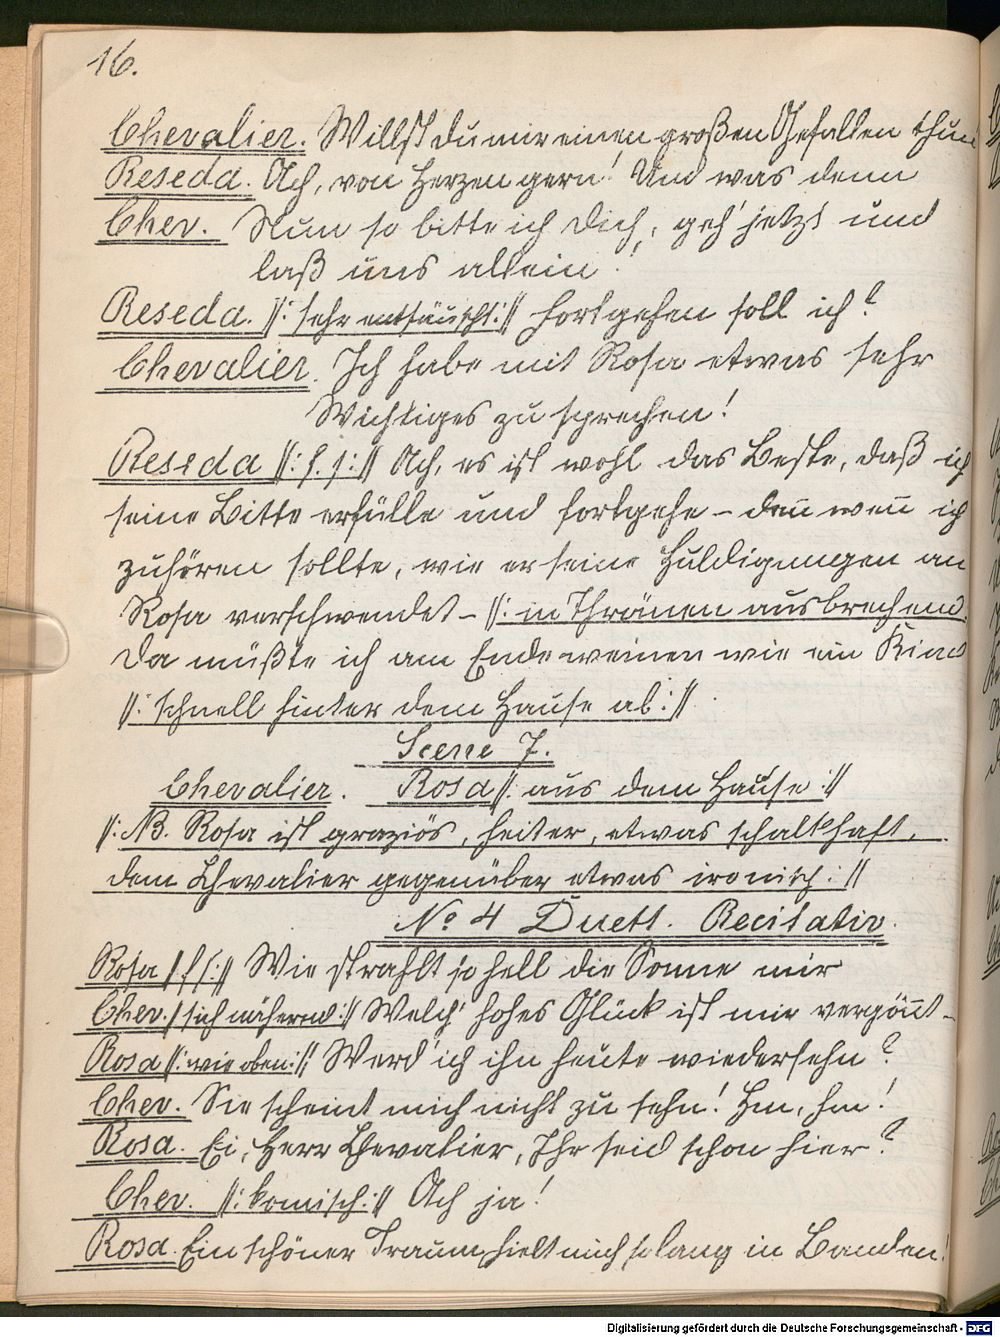 16.
Chevalier. Willst du mir einen großen Gefallen thun
Reseda. Ach, von Herzen gern! Und was denn
Chev. Nun so bitte ich Dich, geh' jetzt und
laß uns allein!
Reseda. //: sehr enttäuscht :// Fortgehen soll ich?
Chevalier. Ich habe mit Rosa etwas sehr
Wichtiges zu sprechen!
Reseda //: f. s. :// Ach, es ist wohl das Beste, daß ich
seine Bitte erfülle und fortgehe – den̄ wen̄ ich
zuhören sollte, wie er seine Huldigungen an
Rosa verschwendet – //: in Thränen ausbrechend
Da müßte ich am Ende weinen wie ein Kind
//: schnell hinter dem Hause ab ://
Scene 7.
Chevalier. Rosa //: aus dem Hause ://
//: NB. Rosa ist graziös, heiter, etwas schalkhaft,
dem Chevalier gegenüber etwas ironisch. //
No 4 Duett. Recitativ.
Rosa // f. s. :// Wie strahlt so hell die Sonne mir
Chev. / sich nähernd :// Welch' hohes Glück ist mir vergön̄t –
Rosa //: wie oben :// Werd' ich ihn heute wiedersehn?
Chev. Sie scheint mich nicht zu sehn! Hm, hm!
Rosa. Ei, Herr Chevalier, Ihr seid schon hier?
Chev. //: komisch :// Ach ja!
Rosa. Ein schöner Traum hielt mich so lang in Banden!
Digitalisierung gefördert durch die Deutsche Forschungsgemeinschaft - DFG